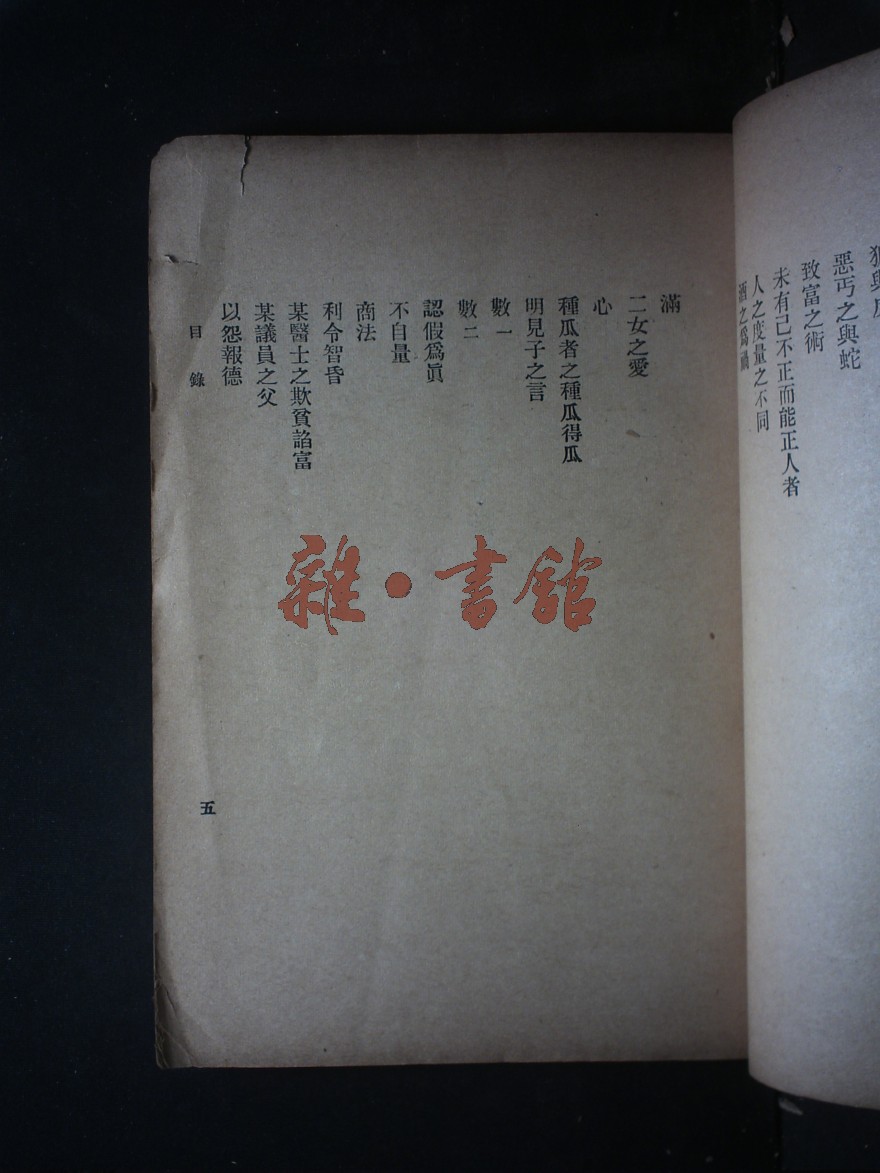 惡丐之與蛇
致富之術
未有己不正而能正人者
人之度量之不同
酒之爲禍
滿
二女之愛
心
種瓜者之種瓜得瓜
明見子之言
數一
數二
認假爲眞
不自量
商法
利令智昏
某醫士之欺貧諂富
某議員之父
以怨報德
目錄
五
雜·書館